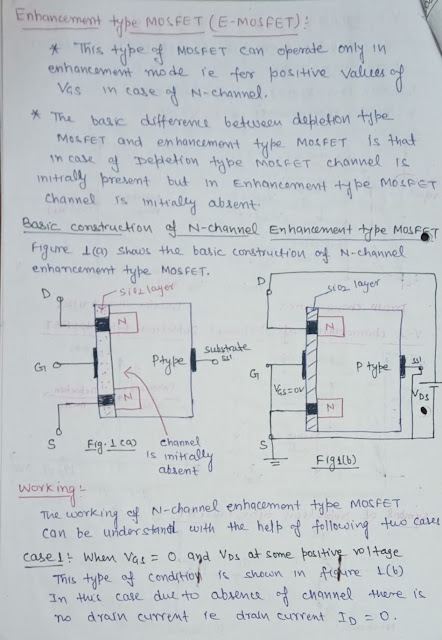 Enhancement type MOSFET (E-MOSFET):
* This type of MOSFET can operate only in
enhancement mode ie for positive values of
VGS in case of N-channel.
* The basic difference between depletion type
MOSFET and enhancement type MOSFET is that
in case of Depletion type MOSFET channel is
initially present but in Enhancement type MOSFET
channel is initially absent.
Basic construction of N-channel Enhancement type MOSFET
Figure 1(a) shows the basic construction of N-channel
enhancement type MOSFET.
D
SiO2 layer
N
G
P type
substrate
SS1
N
S
Fig. 1 (a)
channel
is initially
absent
D
SiO2 layer
N
G
P type
SS1
VGS=0V
VDS
N
S
Fig 1(b)
Working:-
The working of N-channel enhacement type MOSFET
can be understand with the help of following two cases
case 1:- When VGS = 0 and VDS at some positive voltage
This type of condition is shown in figure 1(b)
In this case due to absence of channel there is
no drain current ie drain current ID = 0.